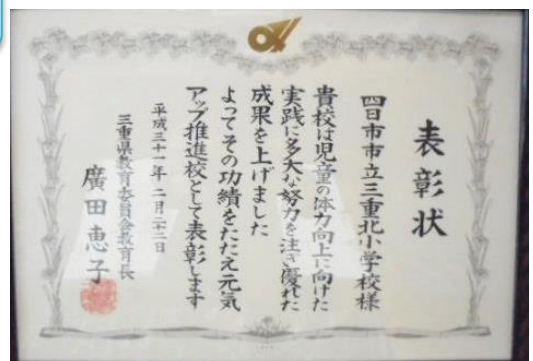 表彰状
四日市市立三重北小学校様
貴校は児童の体力向上に向けた
実践に多大な努力を注ぎ優れた
成果を上げました
よってその功績をたたえ元気
アップ推進校として表彰します
平成三十一年二月二十二日
三重県教育委員会教育長
廣田恵子